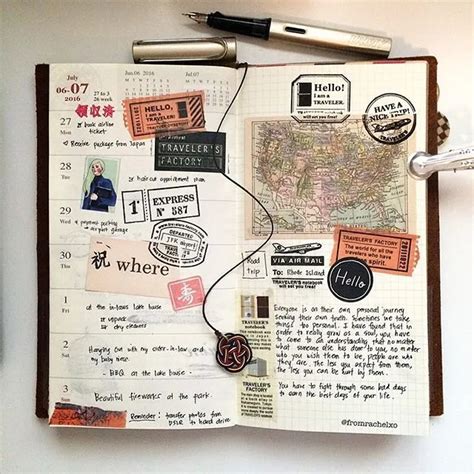 July
06-07
2016
27 to 3
26 week
06 JUN 2016
Jul.07
領収済
book airline
ticket
Receive package from Japan
28
Tue
haircut appointment
29
Wed
30
1
2
3
祝
where
寿
1º
EXPRESS
Nº 587
DEPARTED
JFK airport
HELLO,
I am a
TRAVELER!
TRAVELER'S
FACTORY
at the in-laws lake house
dry cleaners
Hanging out with my sister-in-law, and
my baby niece.
- BBQ at the lake house
Beautiful fireworks at the park.
Reminder: transfer photos from
DSLR to hard drive
Hello!
I am a
TRAVELER.
TRAVELER'S notebook
will set you free!
HAVE A
NICE TRIP!
TRAVELER'S FACTORY
The world for all the
travelers who have
same spirit.
Road
trip
VIA AIR MAIL
To: Rhode Island
TRAVELER'S notebook
will set you free!
Hello
TRAVELER'S
notebook
Everyone is on their own personal journey
seeking their own truth. Sometimes we take
things too personal. I have found that in
order to really grow as a soul, you have
to come to an understanding that no matter
what someone else has done to you, no matter
who you wish them to be, people are who
they are. The less you expect from them,
the less you can be hurt by them.
You have to fight through some bad days
to earn the best days of your life.
TRAVELER'S
FACTORY
@fromrachelxo